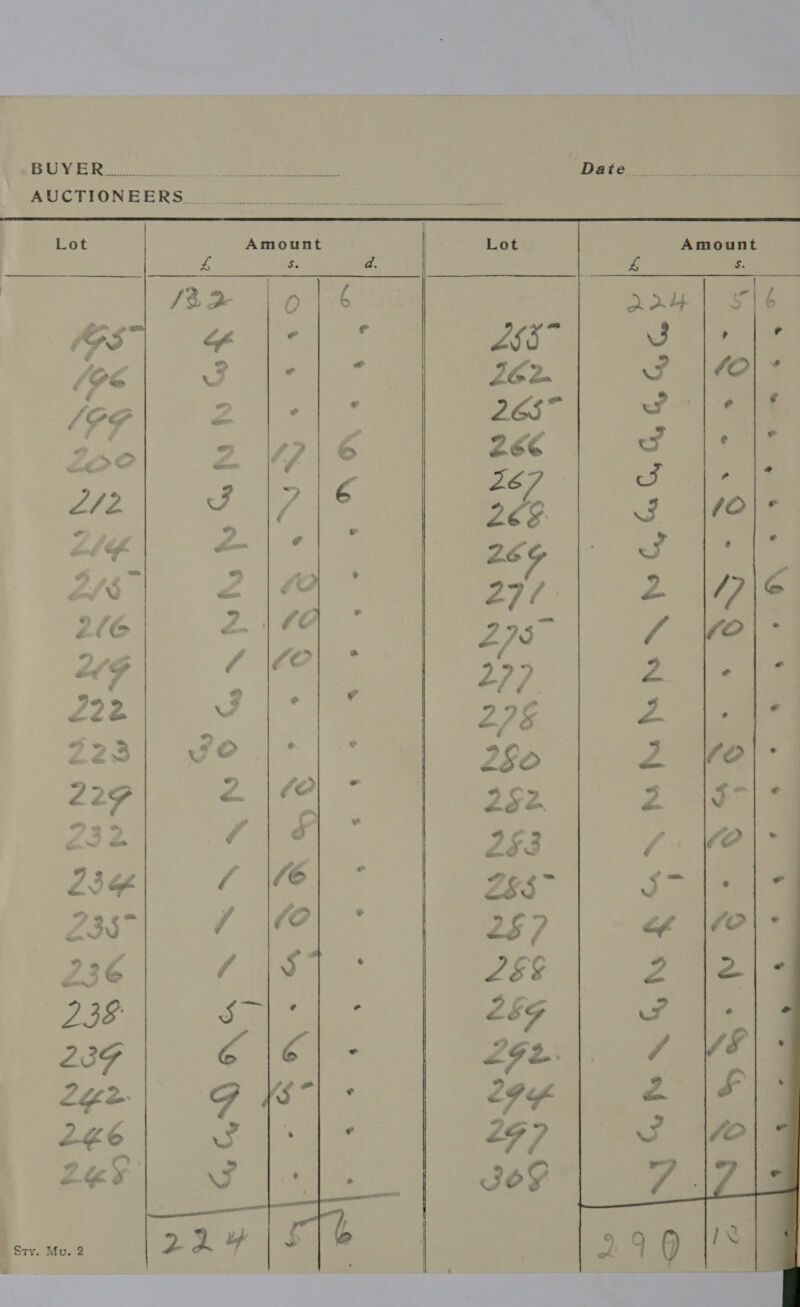 BUYER
Date
AUCTIONEERS
Lot Amount Lot Amount
£ s. d. £ s.
132 0 6
195 4 " "
196 3 " "
199 2 " "
200 2 17 6
212 3 7 6
214 2 " "
215 2 10 "
216 2 10 "
219 1 10 "
222 3 " "
223 30 " "
229 2 10 "
232 1 8 "
234 1 16 "
235 1 10 "
236 1 5 "
238 5 " "
239 6 6 "
242 9 15 "
246 3 " "
248 3 " "
224 5 6
224 5 6
255 3 " "
262 3 10 "
265 3 " "
266 3 " "
267 3 " "
268 3 10 "
269 3 " "
271 2 17 6
275 1 10 "
277 2 " "
278 2 " "
280 2 10 "
282 2 5 "
283 1 10 "
285 5 " "
287 4 10 "
288 2 2 "
289 3 " "
292 1 18 "
294 2 8 "
297 3 10 "
308 7 7 "
290 13
Sty. Mu. 2